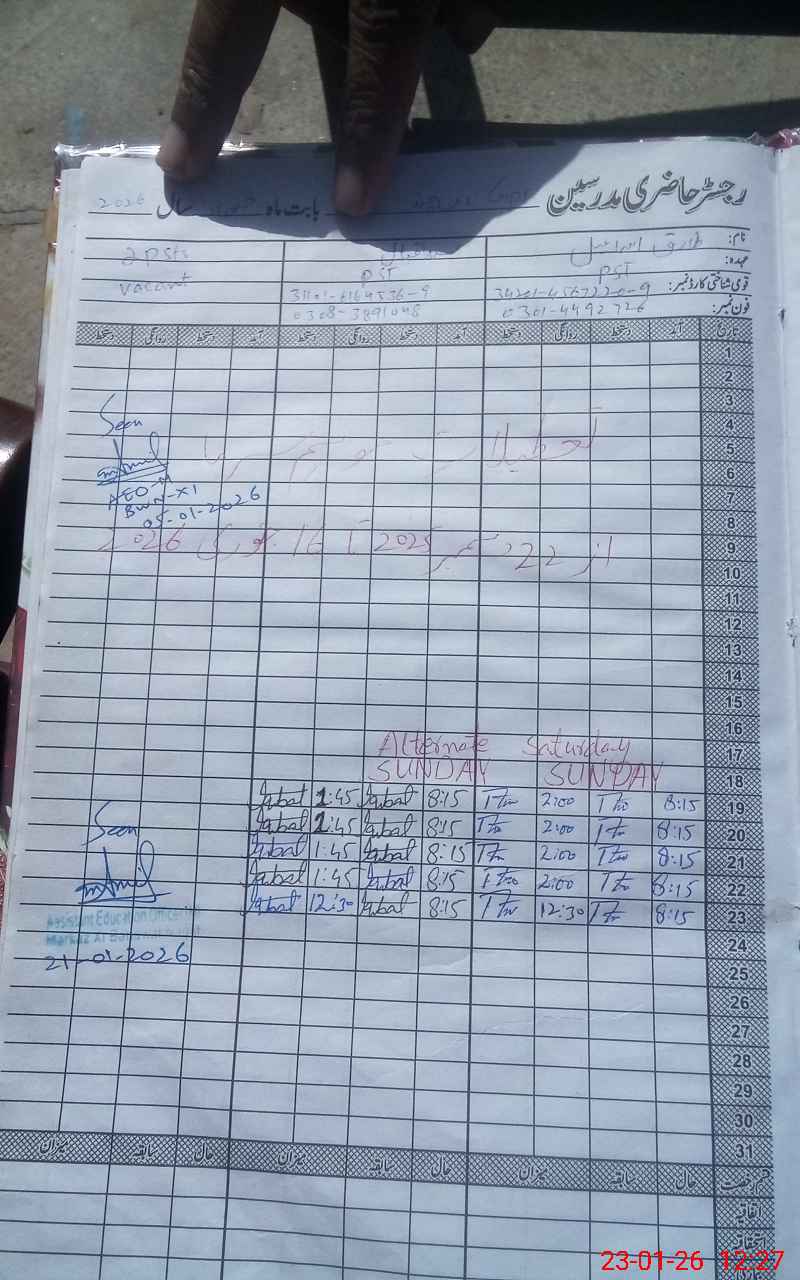 رجسٹر حاضری مدرسین بابت ماہ سال 2026
نام: طارق اسماعیل اقبال 2 psts
عہدہ: PST PST vacant
قومی شناختی کارڈ نمبر: 34201-4567220-9 31101-6164536-9
فون نمبر: 0301-4492726 0308-3891048
تاریخ آمد دستخط روانگی دستخط آمد دستخط روانگی دستخط آمد دستخط روانگی دستخط
1
2
3
4 Seen
5 تعطیلات موسم سرما
6
7 AEO-M
8 BWN-XI
05-01-2026
9 از 22 دسمبر 2025 تا 16 جنوری 2026
10
11
12
13
14
15
16
17 Alternate Saturday
18 SUNDAY SUNDAY
19 8:15 2:00 8:15 Iqbal 1:45 Iqbal
20 8:15 2:00 8:15 Iqbal 1:45 Iqbal
21 8:15 2:00 8:15 Iqbal 1:45 Iqbal
22 8:15 2:00 8:15 Iqbal 1:45 Iqbal
23 8:15 12:30 8:15 Iqbal 12:30 Iqbal
Seen
Assistant Education Officer
Markaz
21-01-2026
24
25
26
27
28
29
30
31
قسم رخصت حال سابقہ میزان حال سابقہ میزان حال سابقہ میزان
اتفاقیہ
استحقاقیہ
23-01-26 12:27